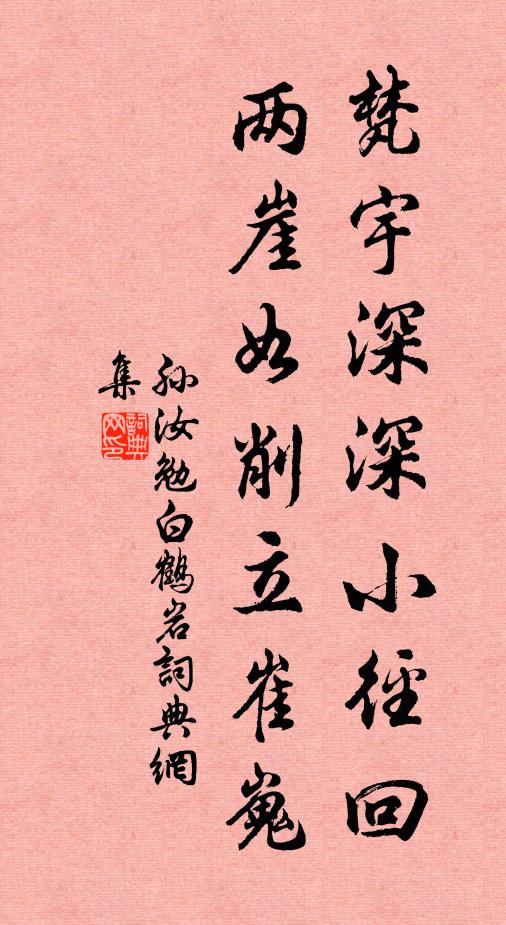 梵宇深深小徑回
两崖如削立崔嵬
孙汝勉白鶴岩詞典網
集
詞典网印